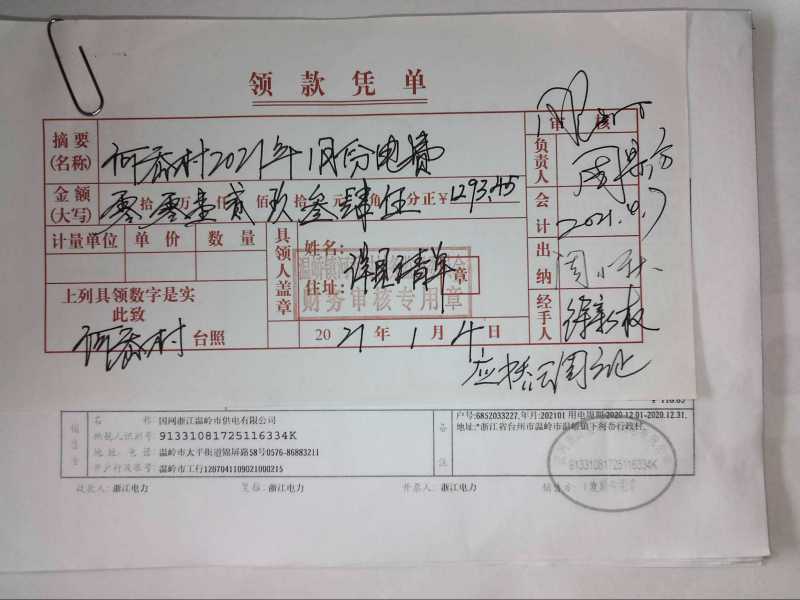 领款凭单
审核
摘要(名称) 何岙村2021年1月份电费
负责人 周
金额(大写) 零拾零万壹仟贰佰玖拾叁元肆角伍分正¥1293.45
会计 2021.
计量单位 单价 数量
具领人盖章
姓名:
住址: 详见清单
章
财务审核专用章
出纳 周小
上列具领数字是实
此致
何岙村 台照
2021年1月4日
经手人 徐新
¥ 116.65
销售方
名称:国网浙江温岭市供电有限公司
纳税人识别号:91331081725116334K
地址、电话:温岭市太平街道锦屏路58号0576-86883211
开户行及账号:温岭市工行1207041109021000215
备注
户号:6852033227,年月:202101 用电周期:2020.12.01-2020.12.31,
地址:*浙江省台州市温岭市温峤镇下河岙行政村,
91331081725116334K
收款人:浙江电力 复核:浙江电力 开票人:浙江电力 销售方: